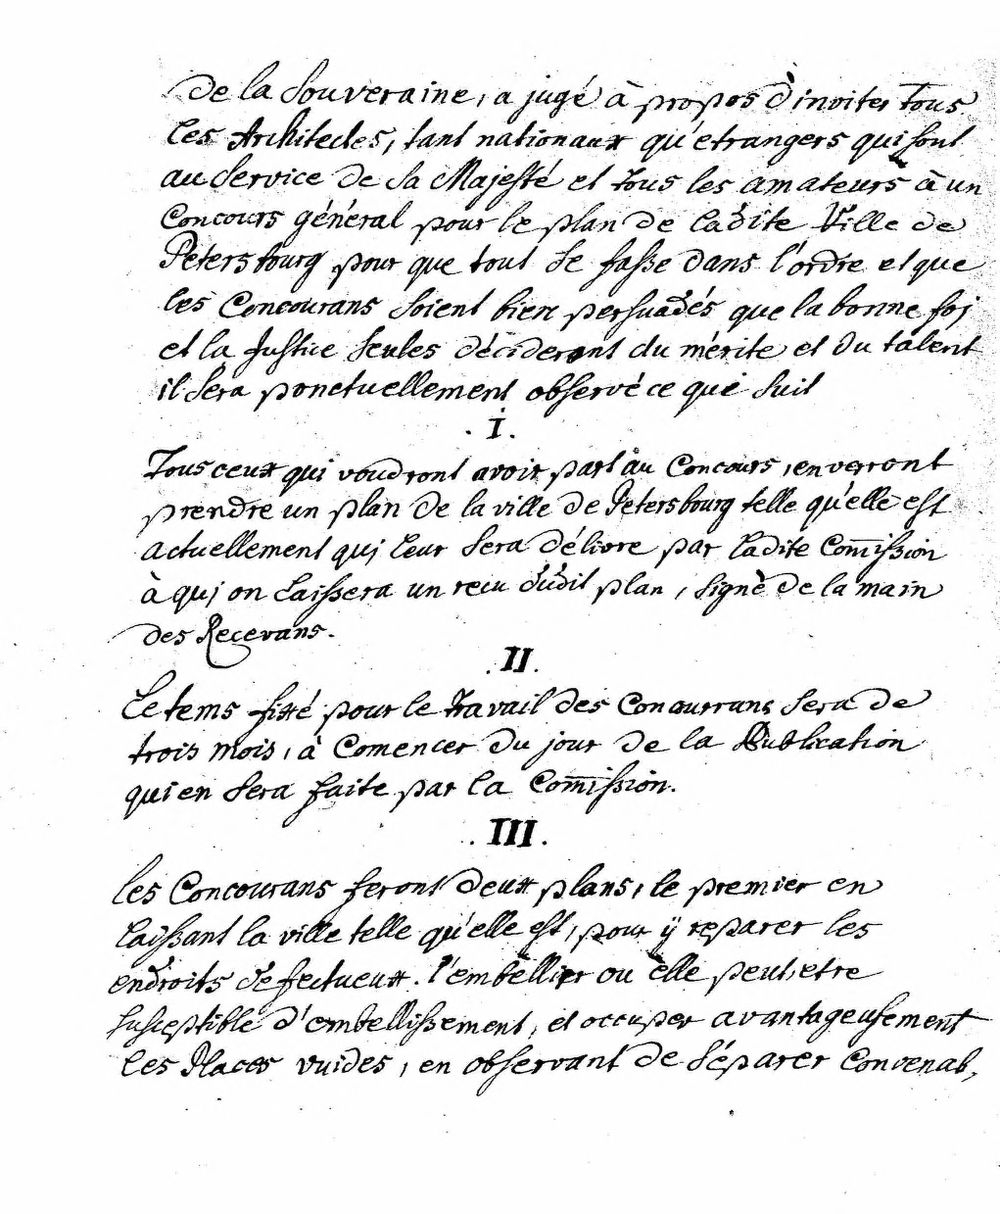 de la Souveraine, a jugé à propos d'inviter Tous
les Architectes, tant nationaux qu'etrangers qui sont
au Service de Sa Majesté et tous les amateurs à un
Concours général pour le plan de ladite Ville de
Petersbourg pour que tout se fasse dans l'ordre et que
les Concourans soient bien persuadés que la bonne foj
et la Justice Seules décideront du mérite et du talent
il Sera ponctuellement observé ce qui suit
. I.
Tous ceux qui voudront avoir part au Concours, enverront
prendre un plan de la ville de Petersbourg telle qu'elle est
actuellement quj leur Sera délivre par ladite Com̄ission
à quj on laissera un recu dudit plan, signé de la main
des Recevans.
. II.
Le tems fixé pour le travail des Concurrans Sera de
trois mois, à Comencer du jour de la Publication
qui en Sera faite par la Com̄ission.
. III.
les Concourans feront deux plans, le premier en
laissant la ville telle qu'elle est, pour ÿ reparer les
endroits défectueux. l'embellir ou elle peut, etre
susceptible d'embellissement, et occuper avantageusement
les Places vuides, en observant de séparer Convenab,